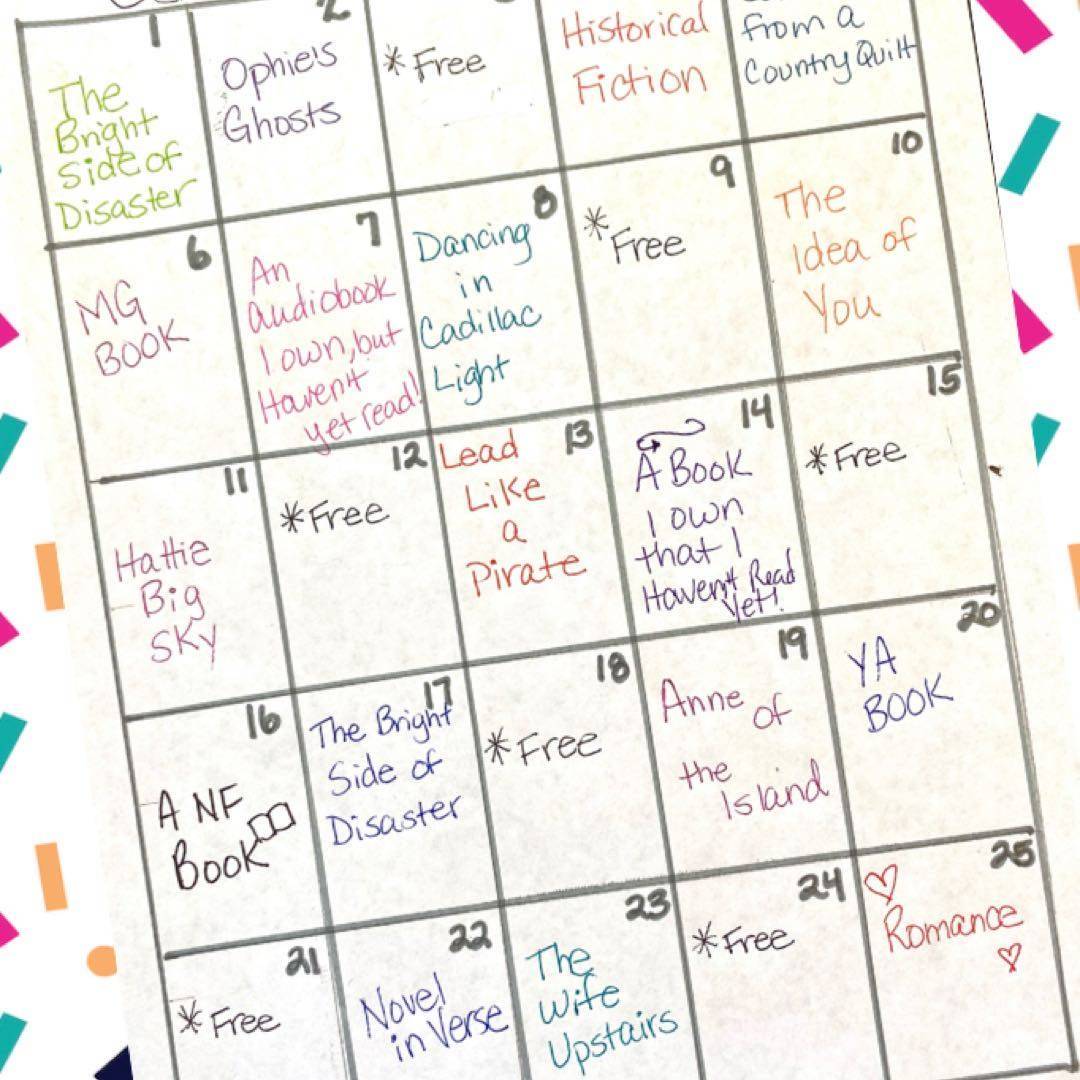 1
The
Bright
Side of
Disaster
2
Ophie's
Ghosts
*Free
Historical
Fiction
from a
Country Quilt
6
MG
BOOK
7
An
audiobook
I own, but
Haven't
yet read!
8
Dancing
in
Cadillac
Light
9
*Free
10
The
Idea of
You
11
Hattie
Big
Sky
12
*Free
13
Lead
Like
a
Pirate
14
A Book
I own
that I
Haven't Read
Yet!
15
*Free
16
A NF
Book
17
The Bright
Side of
Disaster
18
*Free
19
Anne of
the
Island
20
YA
BOOK
21
*Free
22
Novel
in Verse
23
The
Wife
Upstairs
24
*Free
25
Romance